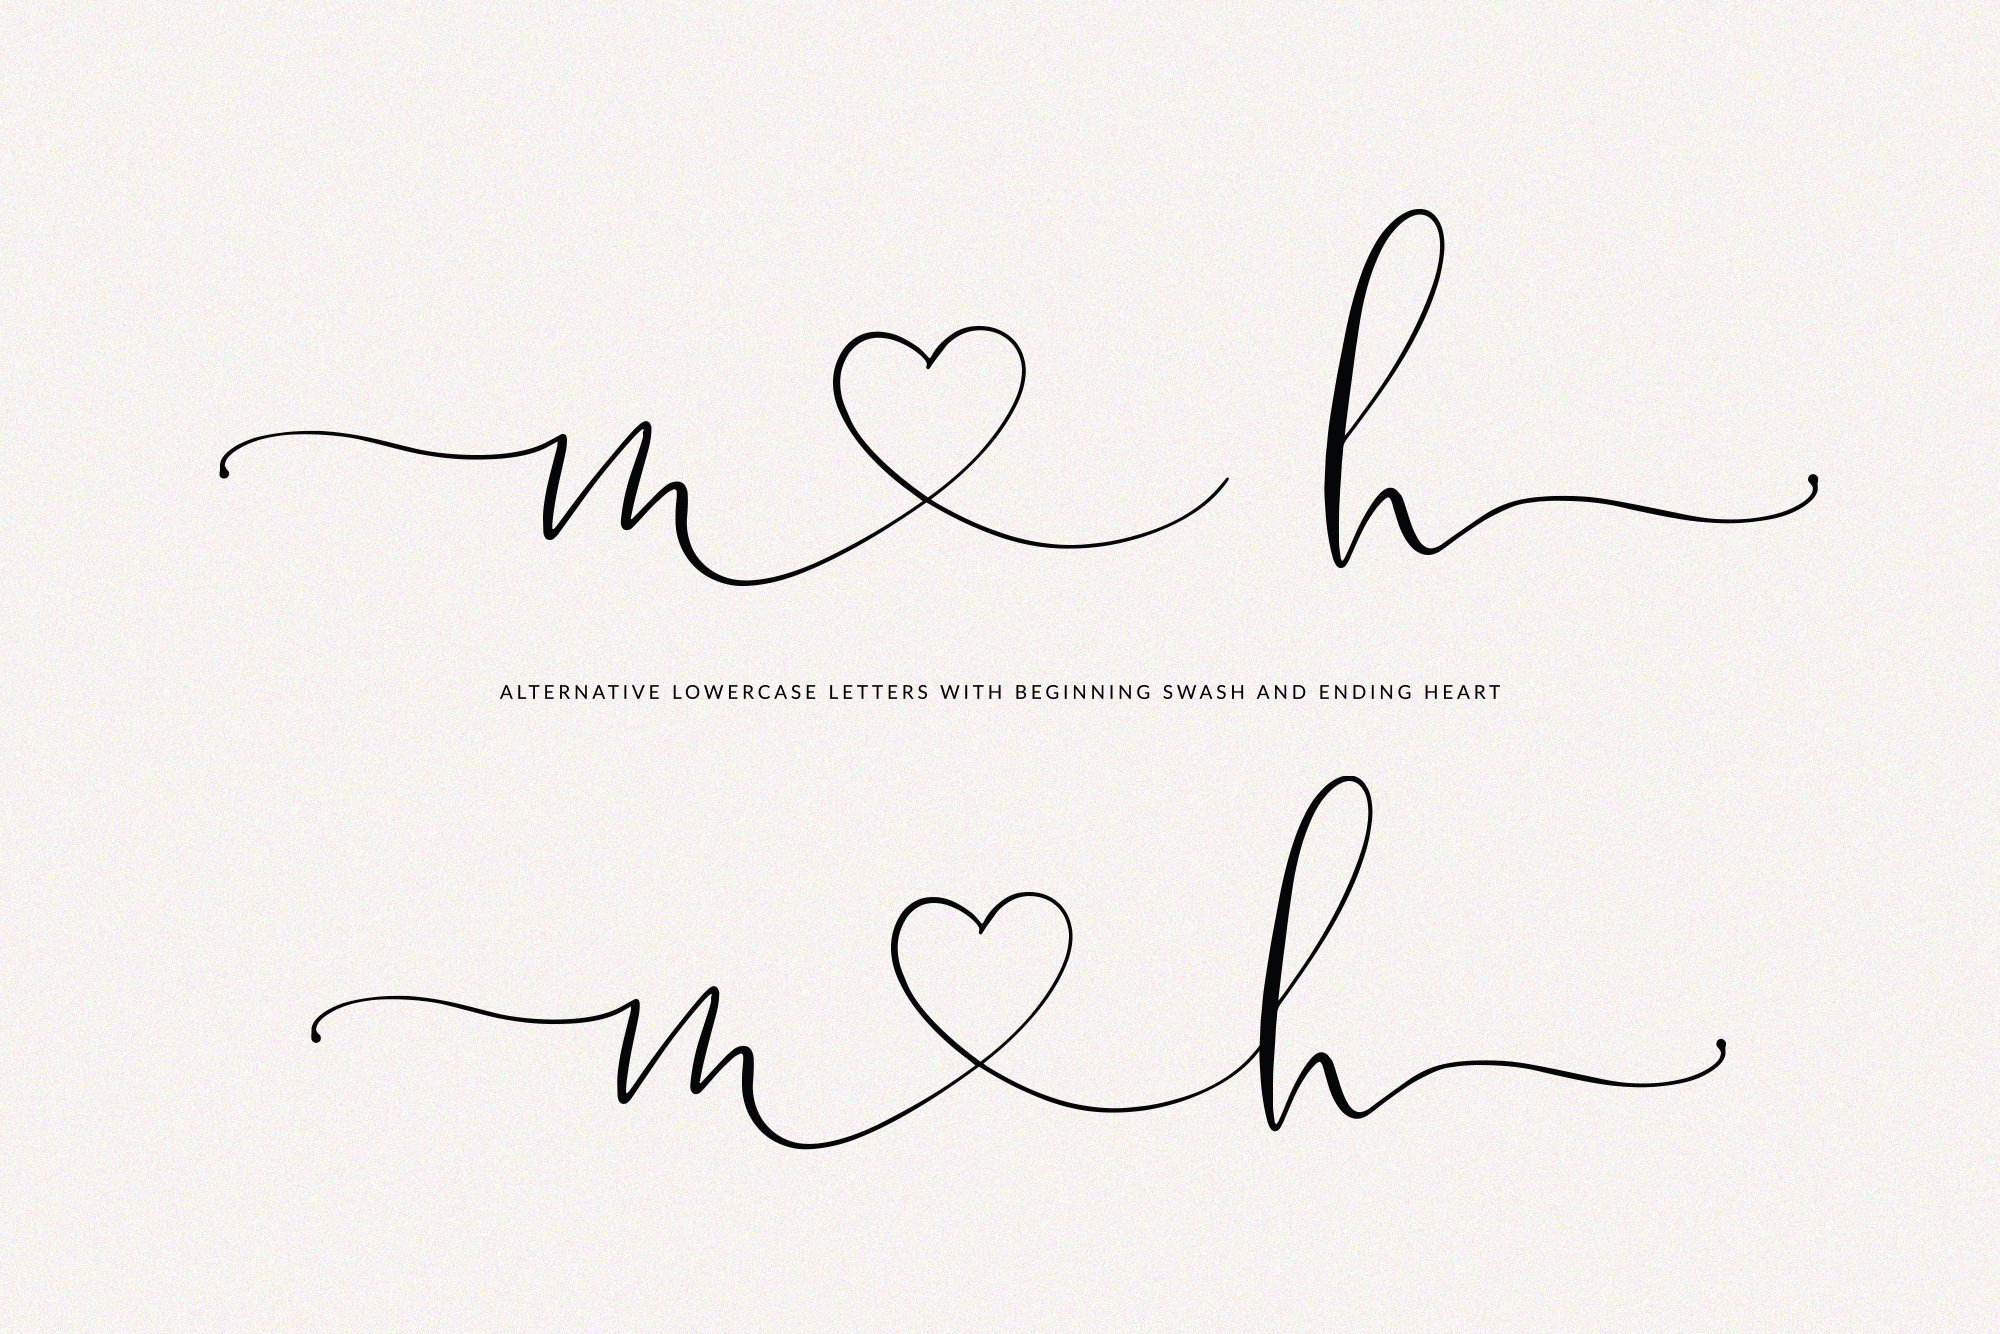 m h
ALTERNATIVE LOWERCASE LETTERS WITH BEGINNING SWASH AND ENDING HEART
mh